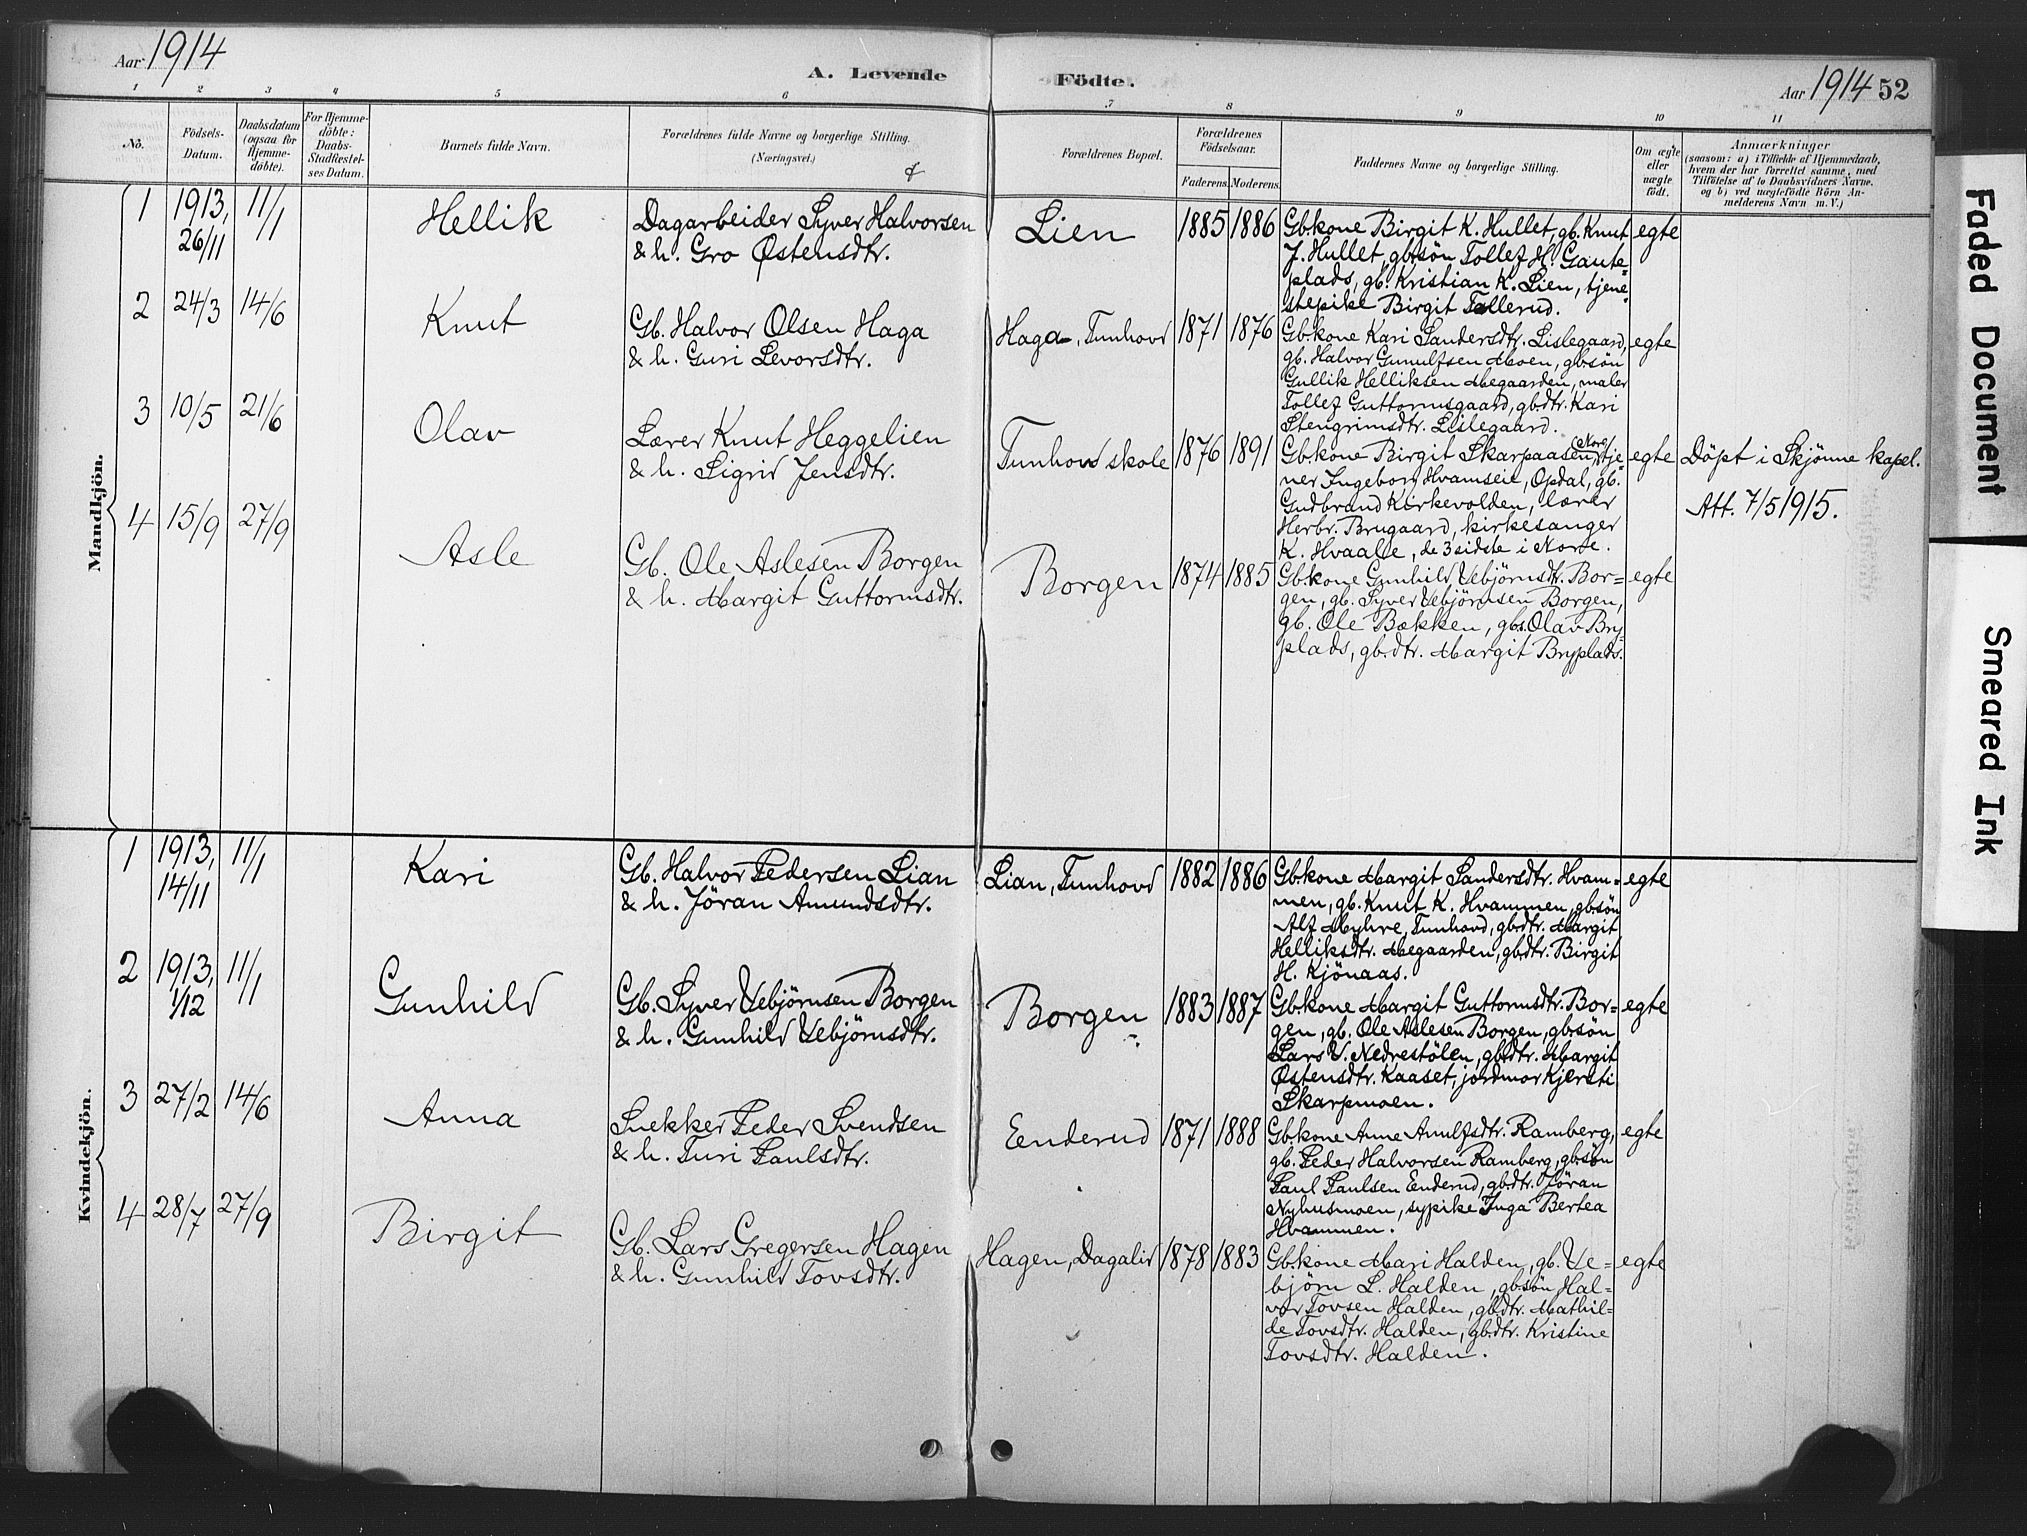 Aar 1914
A. Levende Födte.
Aar 1914 52
1 2 3 4 5 6 7 8 9 10 11
No.
Födsels-
Datum.
Daabsdatum
(ogsaa for
Hjemme-
döbte).
For Hjemme-
döbte:
Daabs-
Stadfæstel-
ses Datum.
Barnets fulde Navn.
Forældrenes fulde Navne og borgerlige Stilling.
(Næringsvei.)
Forældrenes Bopæl.
Forældrenes
Födselsaar.
Faderens. Moderens.
Faddernes Navne og borgerlige Stilling.
Om ægte
eller
uægte
födt.
Anmærkninger
(saasom: a) i Tilfælde af Hjemmedaab,
hvem der har forrettet samme, med
Tilföielse af to Daabsvidners Navne.
og b) ved uægtefödte Börn An-
melderens Navn m. V.)
Mandkjön.
1 1913, 11/1
26/11
Hellik
Dagarbeider Syver Halvorsen
& h. Gro Østensdtr.
Lien
1885 1886
Gbkone Birgit K. Hullet, gb. Knut
J. Hullet, gbsön Tollef H. Gaute=
plads, gb. Kristian K. Lien, tjene=
stepike Birgit Tollerud.
egte
2 24/3 14/6
Knut
Gb. Halvor Olsen Haga
& h. Guri Levorsdtr.
Haga, Tunhovd
1871 1876
Gbkone Kari Sandersdtr. Lislegaard,
gb. Halvor Gunulfsen Moen, gbsön
Gullik Helliksen Megaarden, maler
Tollef Guttormsgaard, gbdtr. Kari
Stengrimsdtr. Lislegaard.
egte
3 10/5 21/6
Olav
Lærer Knut Heggelien
& h. Sigrid Jensdtr.
Tunhovd skole
1876 1891
Gbkone Birgit Skarpaasen, (Nore) tje=
ner Ingeborg Hvamseie, Opdal, gb.
Gudbrand Kirkevolden, lærer
Herbr. Brugaard, kirkesanger
K. Hvaale, de 3 sidste i Nore.
egte
Döpt i Skjönne kapel.
Att. 7/5 1915.
4 15/9 27/9
Asle
Gb. Ole Aslesen Borgen
& h. Margit Guttormsdtr.
Borgen
1874 1885
Gbkone Gunhild Vebjörnsdtr. Bor=
gen, gb. Syver Vebjörnsen Borgen,
gb. Ole Bækken, gbs. Olav Bry=
plads, gbdtr. Margit Bryplads.
egte
Kvindekjön.
1 1913, 11/1
14/11
Kari
Gb. Halvor Pedersen Lian
& h. Jöran Amundsdtr.
Lian, Tunhovd
1882 1886
Gbkone Margit Sandersdtr. Hvam=
men, gb. Knut K. Hvammen, gbsön
Alf Myhre, Tunhovd, gbdtr. Margit
Helliksdtr. Megaarden, gbdtr. Birgit
H. Kjönaas.
egte
2 1913, 11/1
1/12
Gunhild
Gb. Syver Vebjörnsen Borgen
& h. Gunhild Vebjörnsdtr.
Borgen
1883 1887
Gbkone Margit Guttormsdtr. Bor=
gen, gb. Ole Aslesen Borgen, gbsön
Lars V. Nedrestölen, gbdtr. Margit
Østensdtr. Kaaset, jordmor Kjersti
Skarpmoen.
egte
3 27/2 14/6
Anna
Snekker Peder Svendsen
& h. Turi Paulsdtr.
Enderud
1871 1888
Gbkone Anne Arnulfsdtr. Ramberg,
gb. Peder Halvorsen Ramberg, gbsön
Paul Paulsen Enderud, gbdtr. Jöran
Nyhusmoen, sypike Inga Bertea
Hvammen.
egte
4 28/7 27/9
Birgit
Gb. Lars Gregersen Hagen
& h. Gunhild Tovsdtr.
Hagen, Dagalid
1878 1883
Gbkone Mari Halden, gb. Ve=
björn L. Halden, gbsön Hal=
vor Tovsen Halden, gbdtr. Mathil=
de Tovsdtr. Halden, gbdtr. Kristine
Tovsdtr. Halden.
egte
Faded Document
Smeared Ink